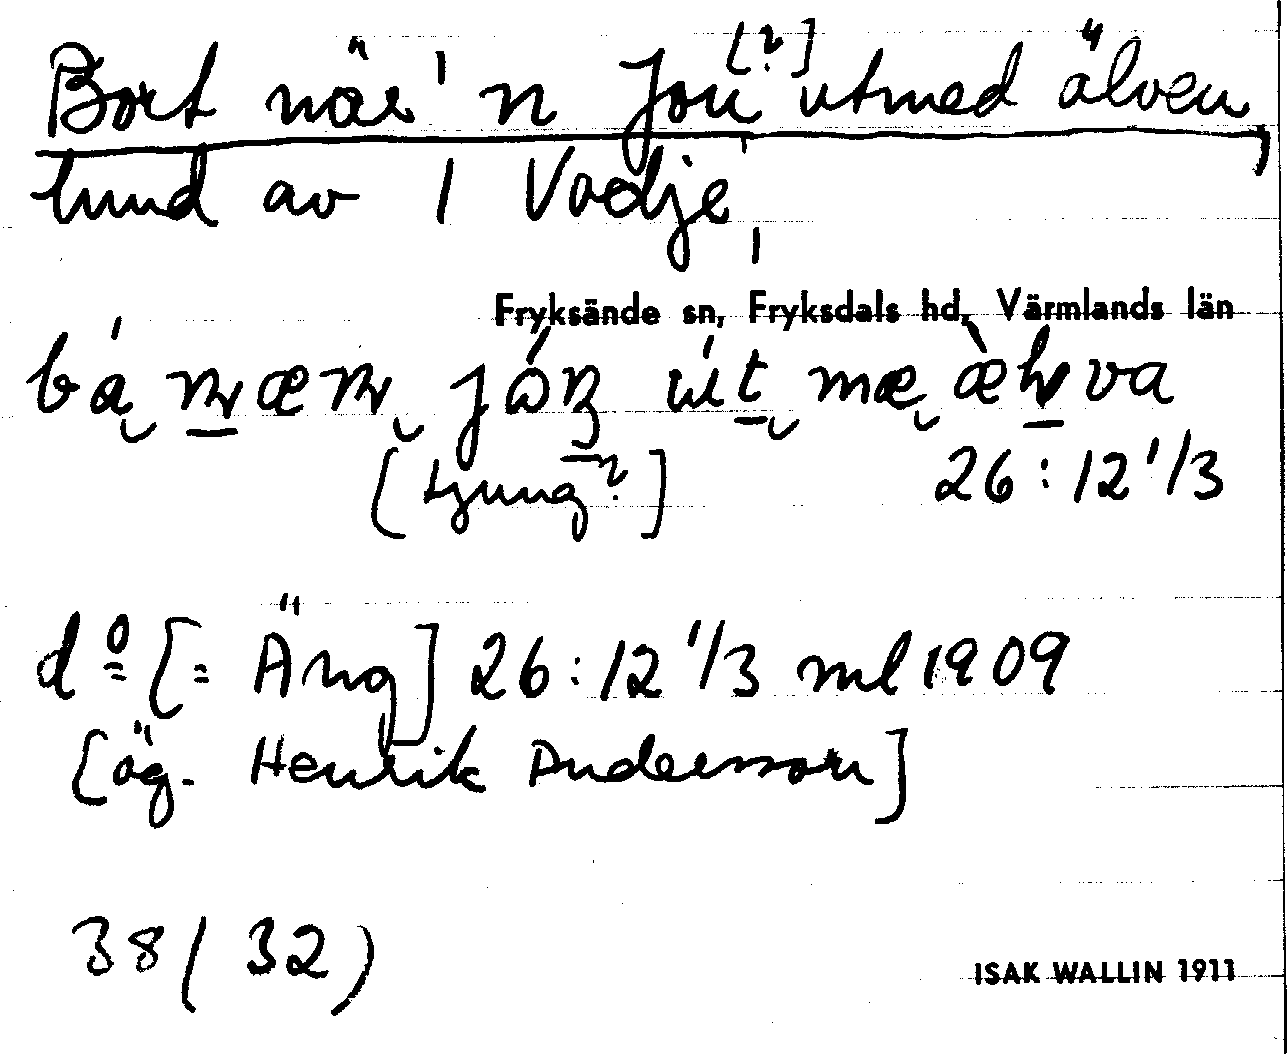 Bort när'n Jon [?] utmed älven,
lund av / Vadje,
Fryksände sn, Fryksdals hd, Värmlands län
[Ljung?] 26:12 1/3
dº [= Äng] 26:12 1/3 ml 1909
[äg. Henrik Andersson]
38 (32)
ISAK WALLIN 1911